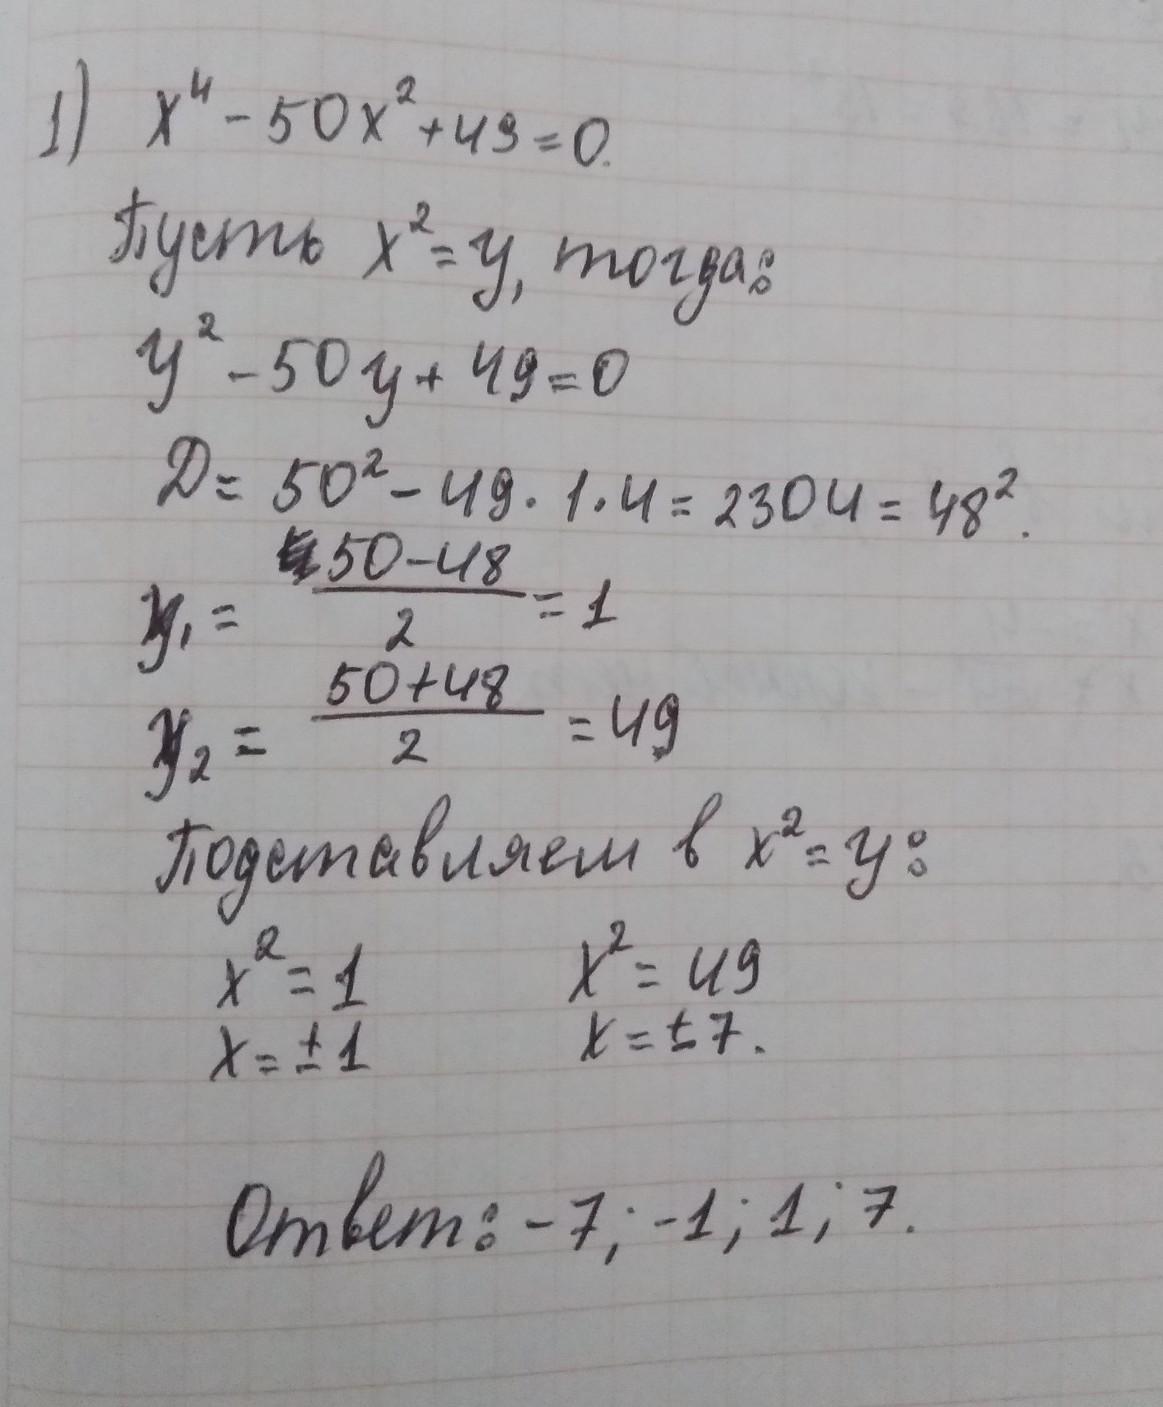 1) x⁴ - 50x² + 49 = 0.
Пусть x² = y, тогда:
y² - 50y + 49 = 0
D = 50² - 49 · 1 · 4 = 2304 = 48².
y₁ = (50 - 48)/2 = 1
y₂ = (50 + 48)/2 = 49
Подставляем в x² = y:
x² = 1    x² = 49
x = ±1    x = ±7.
Ответ: -7; -1; 1; 7.